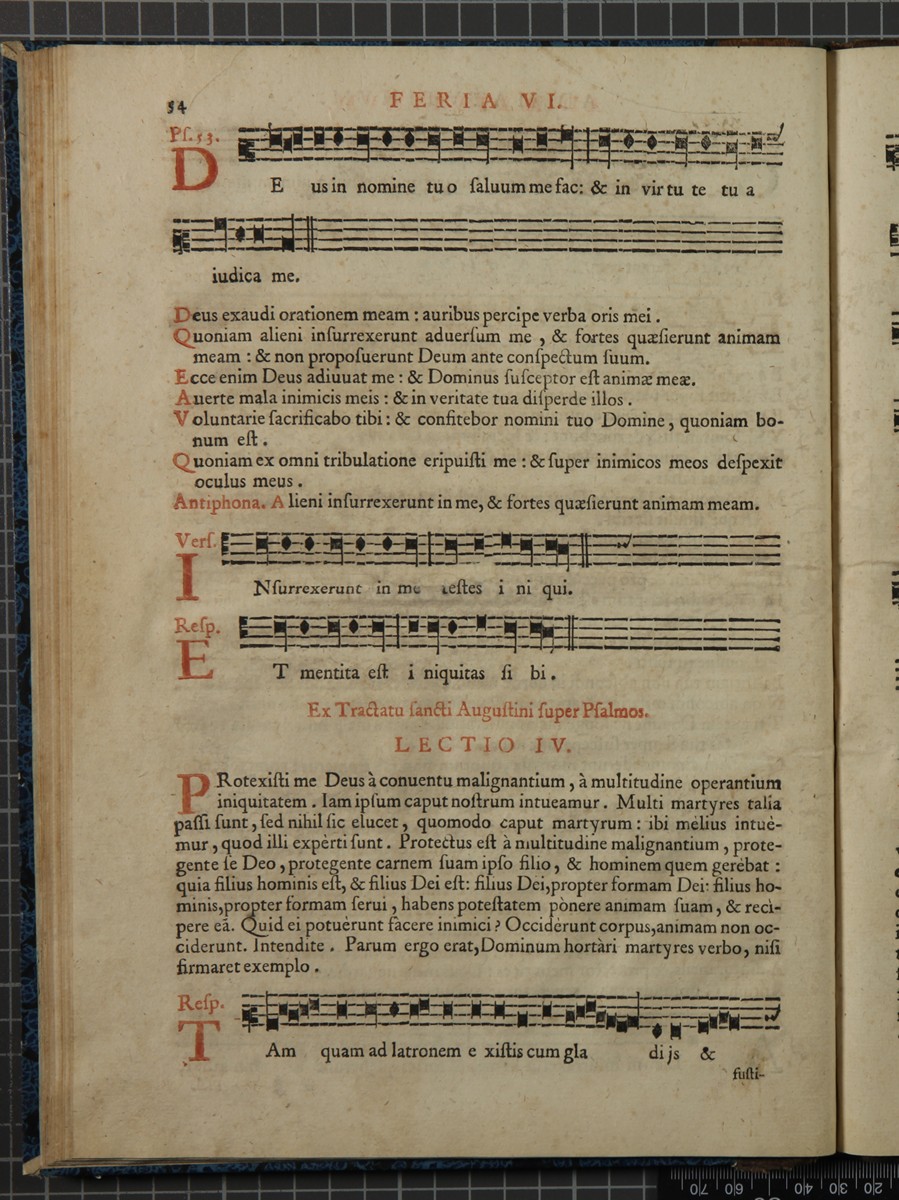 54
FERIA VI.
Pſ. 53.
DE us in nomine tu o ſaluum me fac: & in vir tu te tu a
iudica me.
Deus exaudi orationem meam : auribus percipe verba oris mei .
Quoniam alieni inſurrexerunt aduerſum me , & fortes quæſierunt animam
meam : & non propoſuerunt Deum ante conſpectum ſuum.
Ecce enim Deus adiuuat me : & Dominus ſuſceptor eſt animæ meæ.
Auerte mala inimicis meis : & in veritate tua diſperde illos .
Voluntarie ſacrificabo tibi : & confitebor nomini tuo Domine , quoniam bo-
num eſt .
Quoniam ex omni tribulatione eripuiſti me : & ſuper inimicos meos deſpexit
oculus meus .
Antiphona. Alieni inſurrexerunt in me, & fortes quæſierunt animam meam.
Verſ.
INſurrexerunt in me teſtes i ni qui.
Reſp.
ET mentita eſt i niquitas ſi bi .
Ex Tractatu ſancti Auguſtini ſuper Pſalmos.
LECTIO IV.
PRotexiſti me Deus à conuentu malignantium , à multitudine operantium
iniquitatem . Iam ipſum caput noſtrum intueamur . Multi martyres talia
paſſi ſunt , ſed nihil ſic elucet , quomodo caput martyrum : ibi mèlius intuè-
mur , quod illi expèrti ſunt . Protectus eſt à multitudine malignantium , prote-
gente ſe Deo , protegente carnem ſuam ipſo filio , & hominem quem gerèbat :
quia filius hominis eſt, & filius Dei eſt: filius Dei,propter formam Dei: filius ho-
minis,propter formam ſerui , habens poteſtatem pònere animam ſuam , & recì-
pere eã. Quid ei potuèrunt fàcere inimici ? Occidèrunt corpus,animam non oc-
ciderunt. Intendite . Parum ergo erat,Dominum hortàri martyres verbo, niſi
firmaret exemplo .
Reſp.
TAm quam ad latronem e xiſtis cum gla di js &
fuſti-
70 60 50 40 30 20